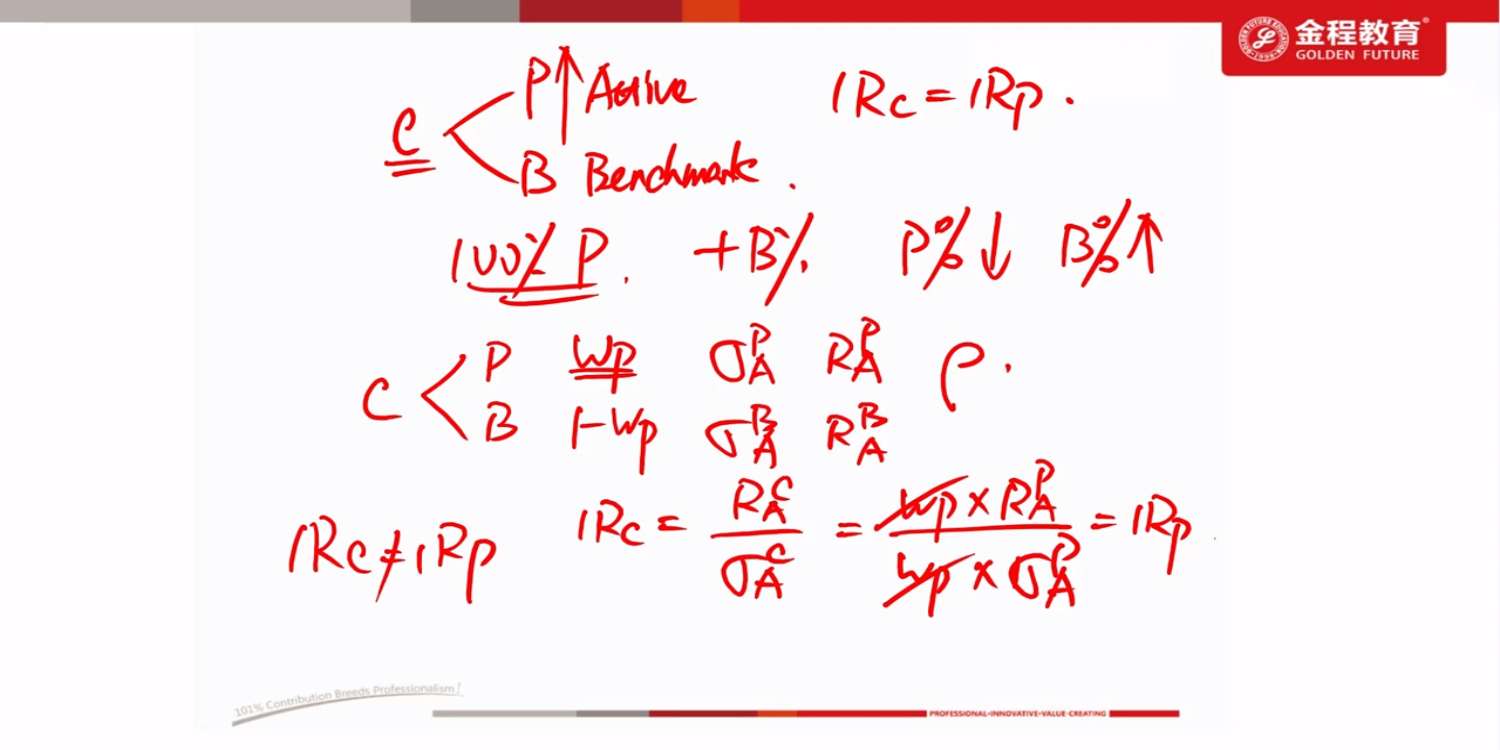 金程教育®
GOLDEN FUTURE
C < P↑ Active
B Benchmark.
IRc = IRp.
100% P. +B% P%↓ B%↑
C < P Wp σ_A^P R_A^P ρ.
B 1-Wp σ_A^B R_A^B
IRc ≠ IRp
IRc = R_A^C / σ_A^C = Wp × R_A^P / Wp × σ_A^P = IRp
101% Contribution Breeds Professionalism!
PROFESSIONAL•INNOVATIVE•VALUE-CREATING